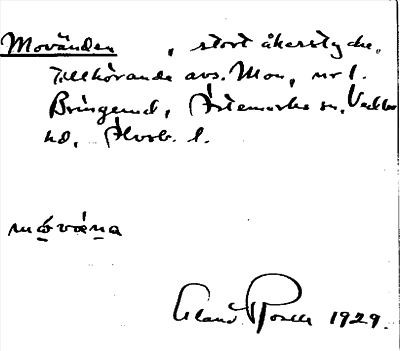 Movänden, stort åkerstycke,
tillhörande avs. Mon, nr 1.
Bringerud, Ärtemarks sn, Vedbo
hd, Älvsb. l.
móvæna
Claes 1929.